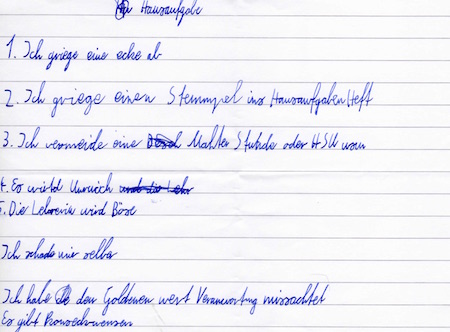 Hausaufgabe
1. Ich griege eine ecke ab
2. Ich griege einen Stemmpel ins Hausaufgaben Heft
3. Ich vermeide eine Mahte Stunde oder HSU
4. Es wird Unruich
5. Die Lehrerin wird Böse
Ich schade mir selber
Ich habe den Goldenen wert Veranwortung missachtet
Es gibt Konsechwensen